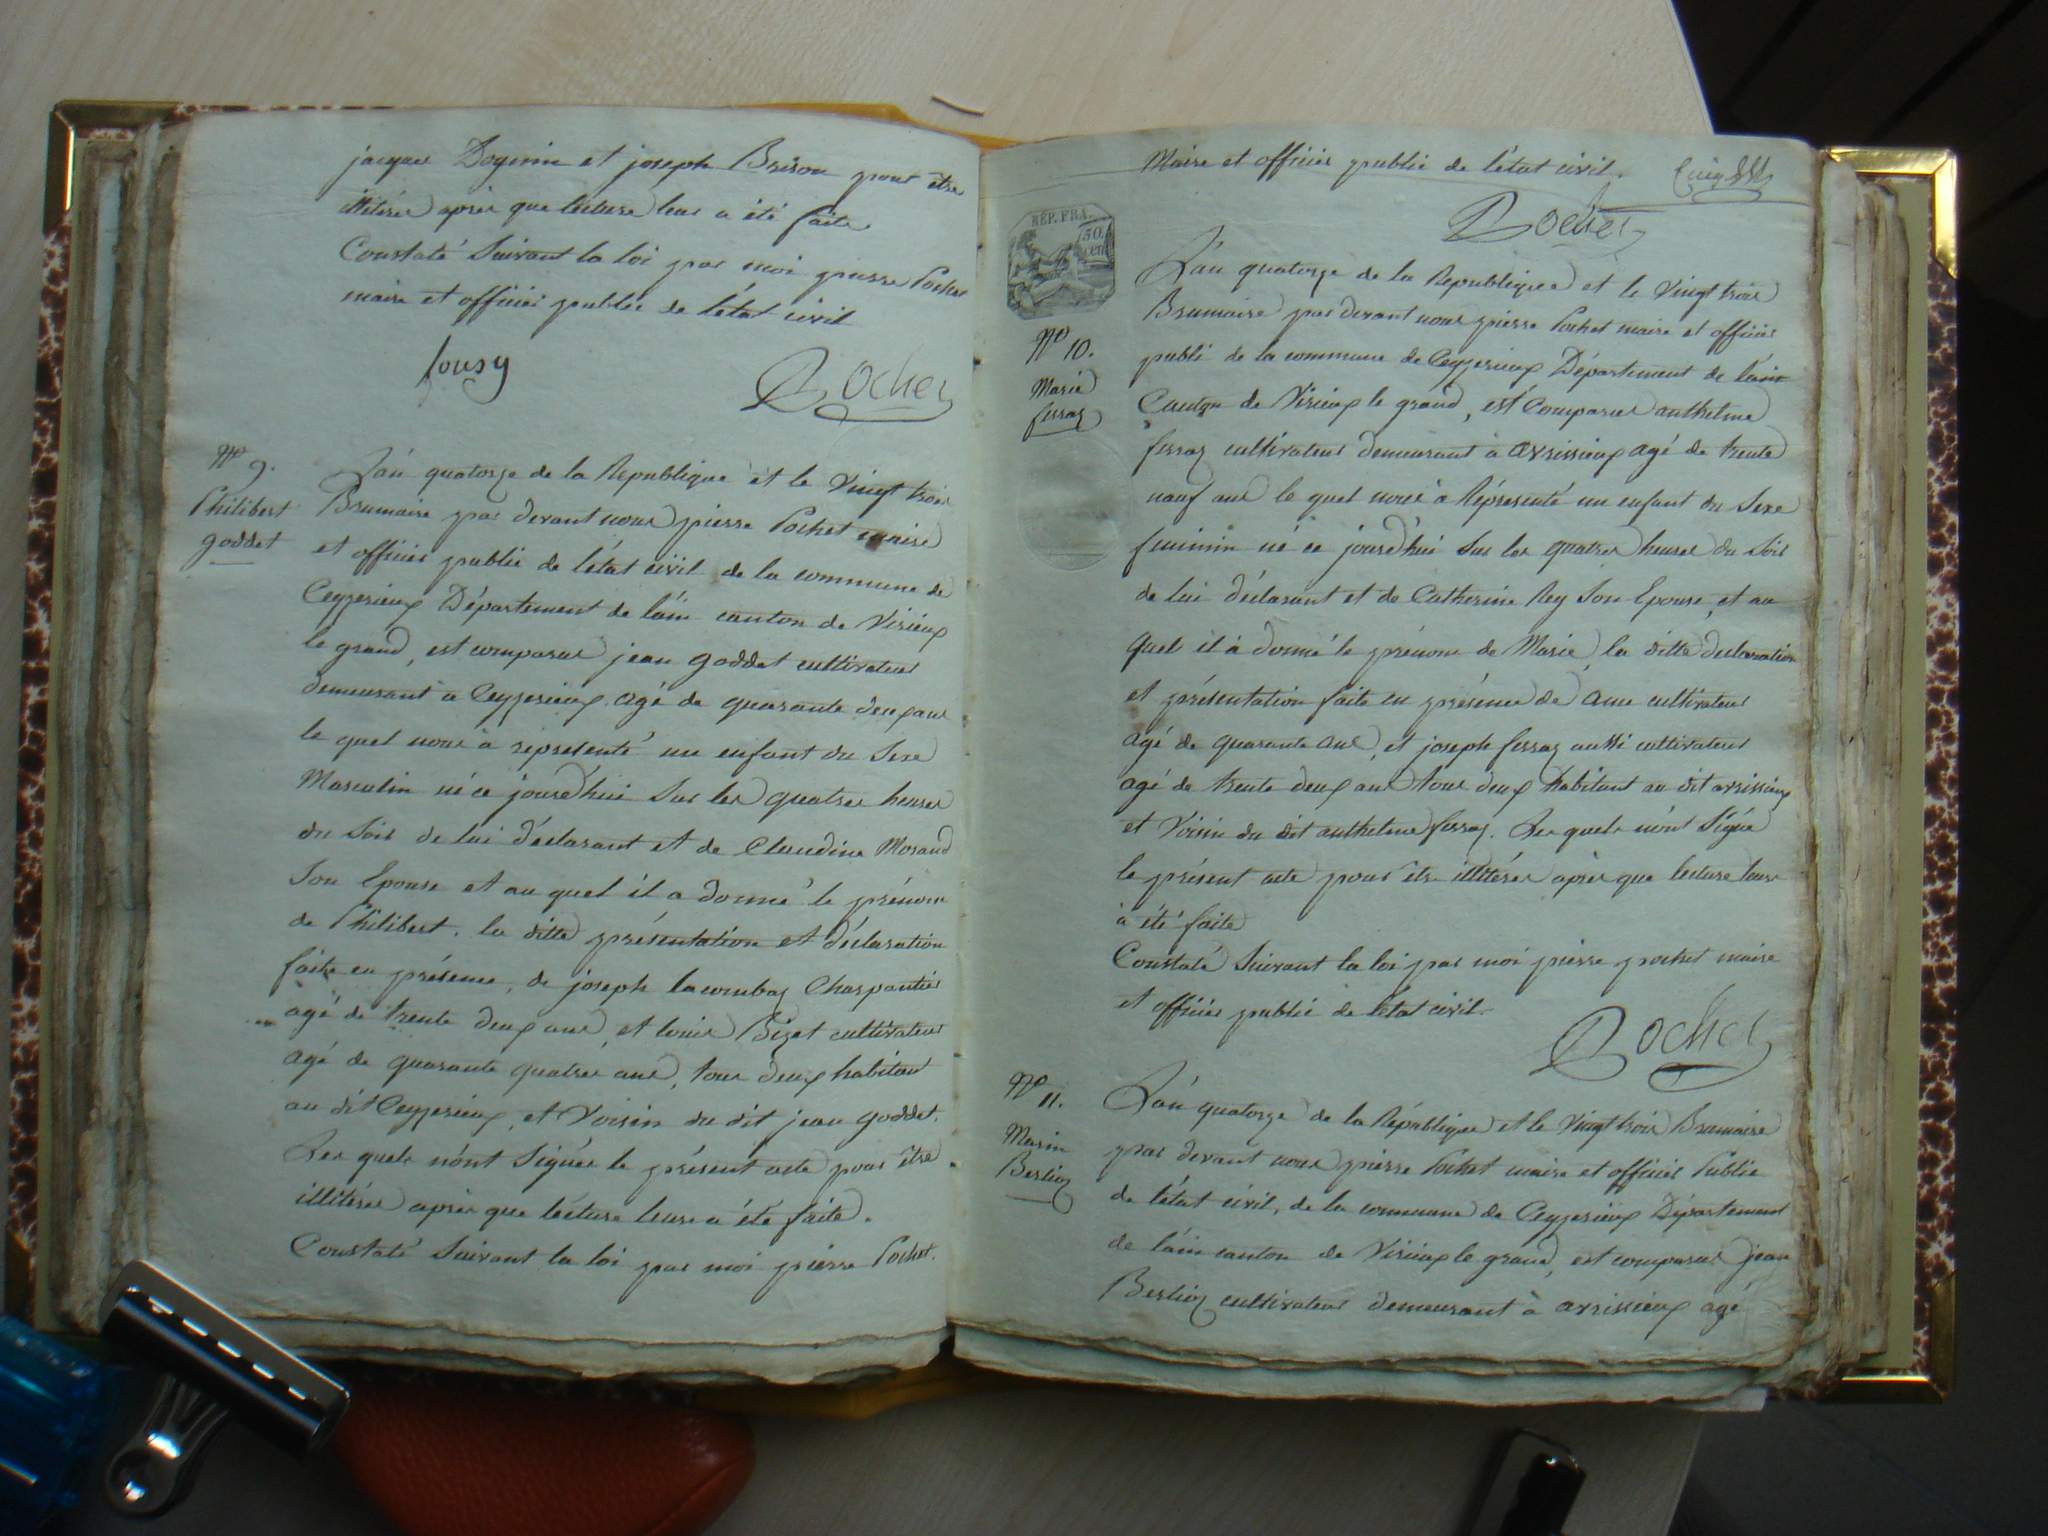 jacques Dogmin et joseph Brison pour être
illitérés après que lecture leur a été faite
Constaté Suivant la loi par moi pierre Pochet
maire et officier public de l'état civil
Jousy
Pochet
N° 9.
Philibert
goddet
L'án quatorze de la Republique et le Vingt trois
Brumaire par devant nous pierre Pochet maire
et officier public de l'état civil de la commune de
Ceyzerieux Département de l'áin canton de Virieux
le grand, est comparus jean goddet cultivateur
demeurant à Ceyzerieux agé de quarante deux ans
le quel nous à représenté un enfant du Sexe
Masculin né ce jourd'hui Sur les quatres heures
du Soir de lui déclarant et de Claudine Morand
Son Epouse et au quel il a donné le prénom
de Philibert. la ditte présentation et déclaration
faite en présence, de joseph lacombaz Charpantier
agé de trente deux ans, et louis Bizet cultivateur
agé de quarante quatres ans, tous deux habitant
au dit Ceyzerieux, et Voisin du dit jean goddet.
Les quels n'ónt Signés le présent acte pour être
illitérés après que lécture leurs a été faite.
Constaté Suivant la loi par moi pierre Pochet.
Maire et officier public de l'état civil.
Pochet
RÉP. FRA.
50
cen
N° 10.
Marie
ferraz
L'án quatorze de la Republique et le Vingt trois
Brumaire par devant nous pierre Pochet maire et officier
publi de la commune de Ceyzerieux Département de l'áin
Canton de Virieux le grand, est Comparus anthelme
ferraz cultivateur demeurant à avrissieux agé de trente
neuf ans le quel nous à Réprésenté un enfant du Sexe
feminin né ce jourd'hui Sur les quatres heures du Soir
de lui déclarant et de Catherine Rey Son Epouse, et au
quel il à donné le prénom de Marie, la ditte declaration
et présentation faite en présence de ame cultivateur
agé de quarante ans, et joseph ferraz aussi cultivateur
agé de trente deux ans tous deux habitant au dit avrissieux
et Voisin du dit anthelme ferraz. Les quels n'ónt Signé
le présent acte pour être illitérés après que lecture leurs
à été faite
Constaté Suivant la loi par moi pierre pochet maire
et officier public de l'état civil.
Pochet
N° 11.
Marin
Berlioz
L'án quatorze de la République et le Vingt trois Brumaire
par devant nous pierre Pochet maire et officier Public
de l'état civil, de la commune de Ceyzerieux Département
de l'áin canton de Virieux le grand, est comparus jean
Berlioz cultivateur demeurant à avrissieux agé